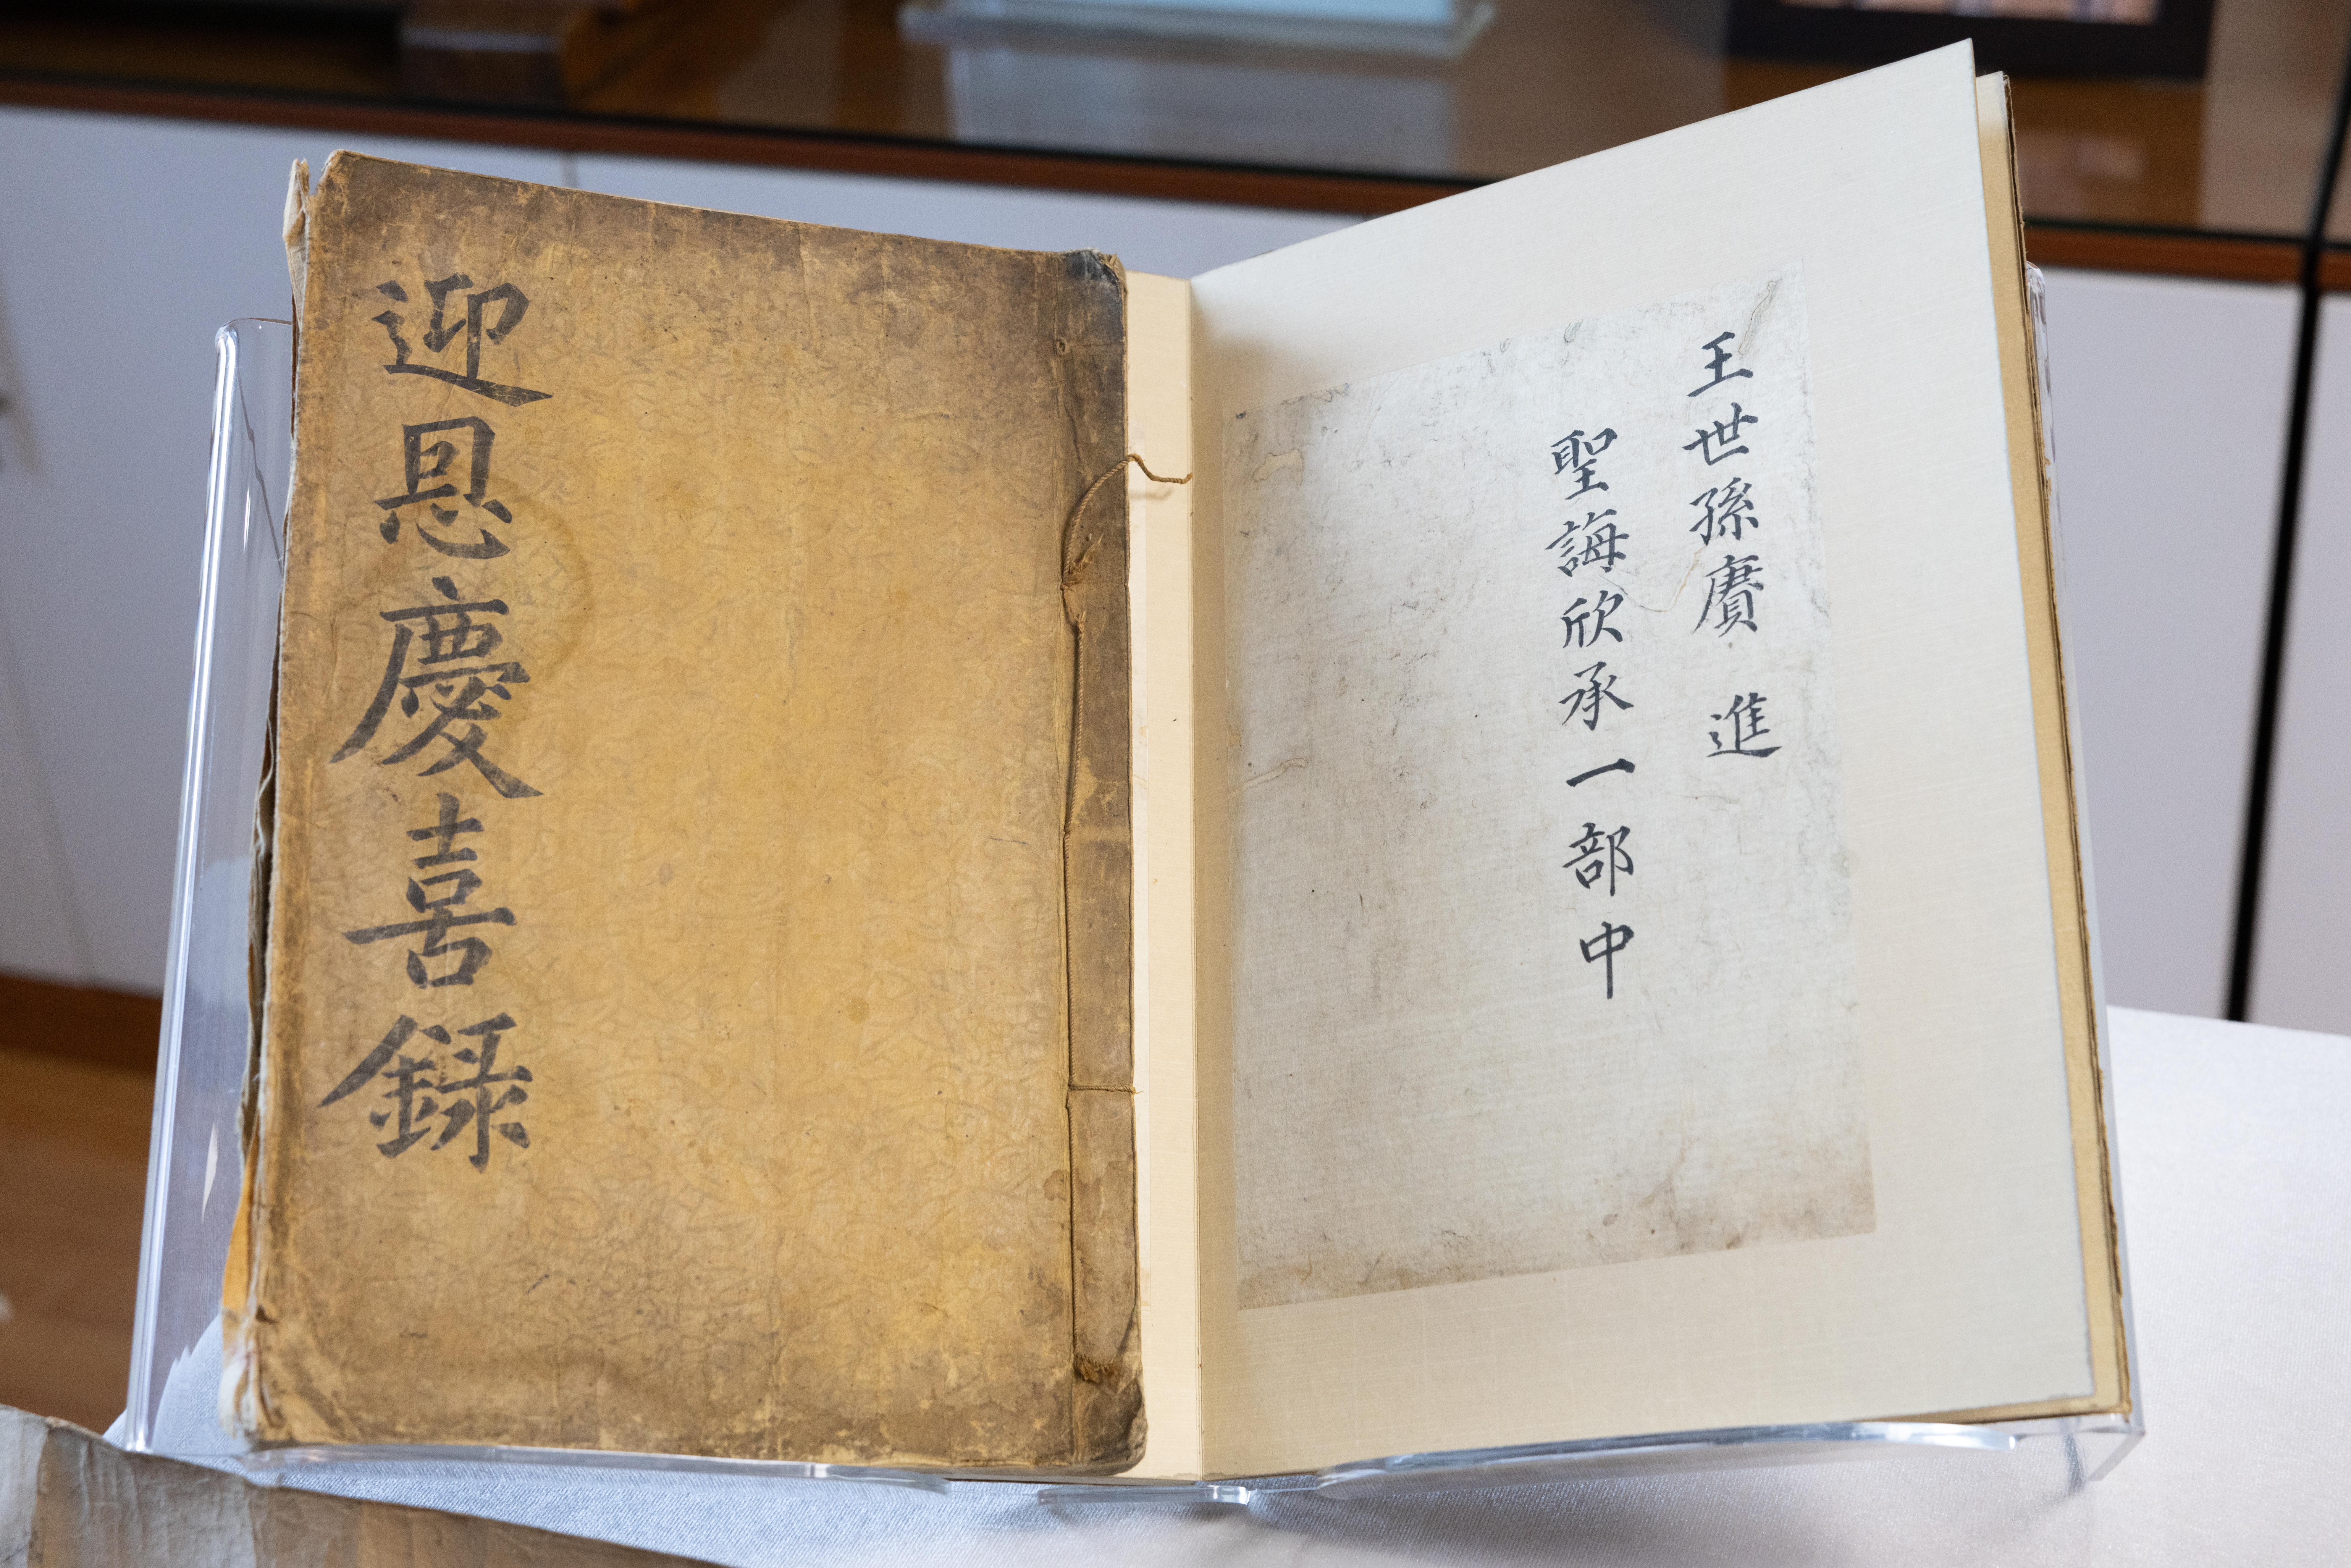 迎恩慶喜錄
王世孫賡 進
聖誨欣承一部中